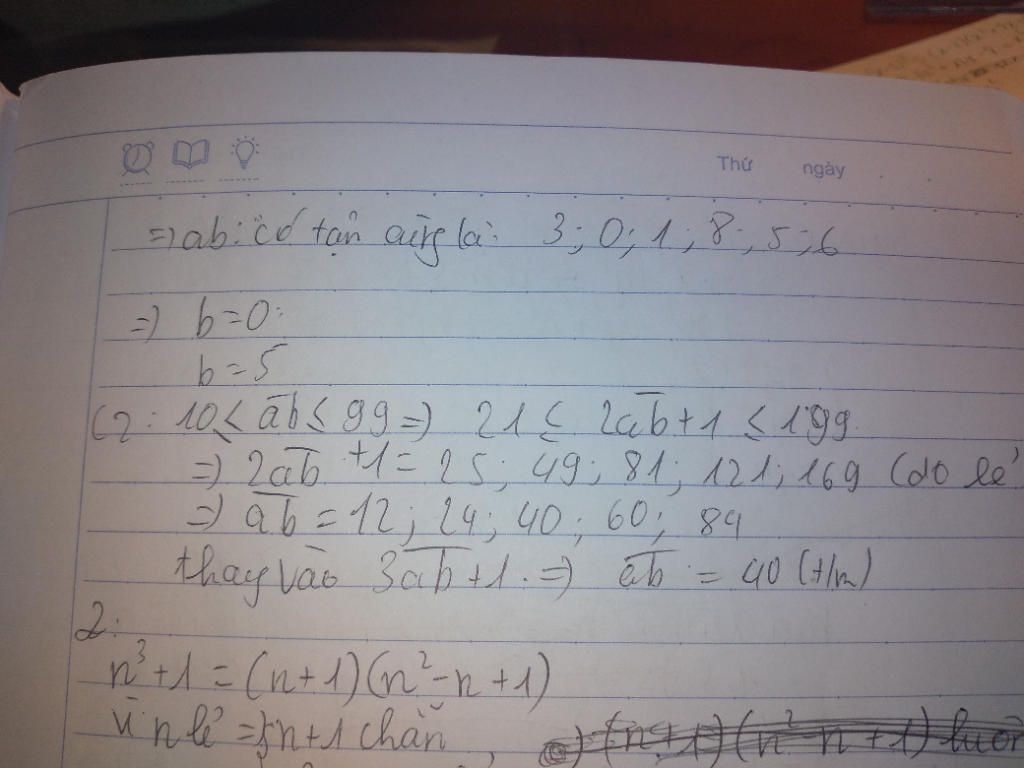 Thứ ngày
=) ab: có tận cùng là: 3; 0; 1; 8; 5; 6
=) b = 0
b = 5
C2: 10 ≤ \overline{ab} ≤ 99 =) 21 ≤ 2\overline{ab} + 1 ≤ 199
=) 2\overline{ab} + 1 = 25; 49; 81; 121; 169 (do lẻ
=) \overline{ab} = 12; 24; 40; 60; 84
thay vào 3\overline{ab} + 1 =) \overline{ab} = 40 (t/m)
2:
n³ + 1 = (n + 1)(n² - n + 1)
Vì n lẻ =) n + 1 chẵn